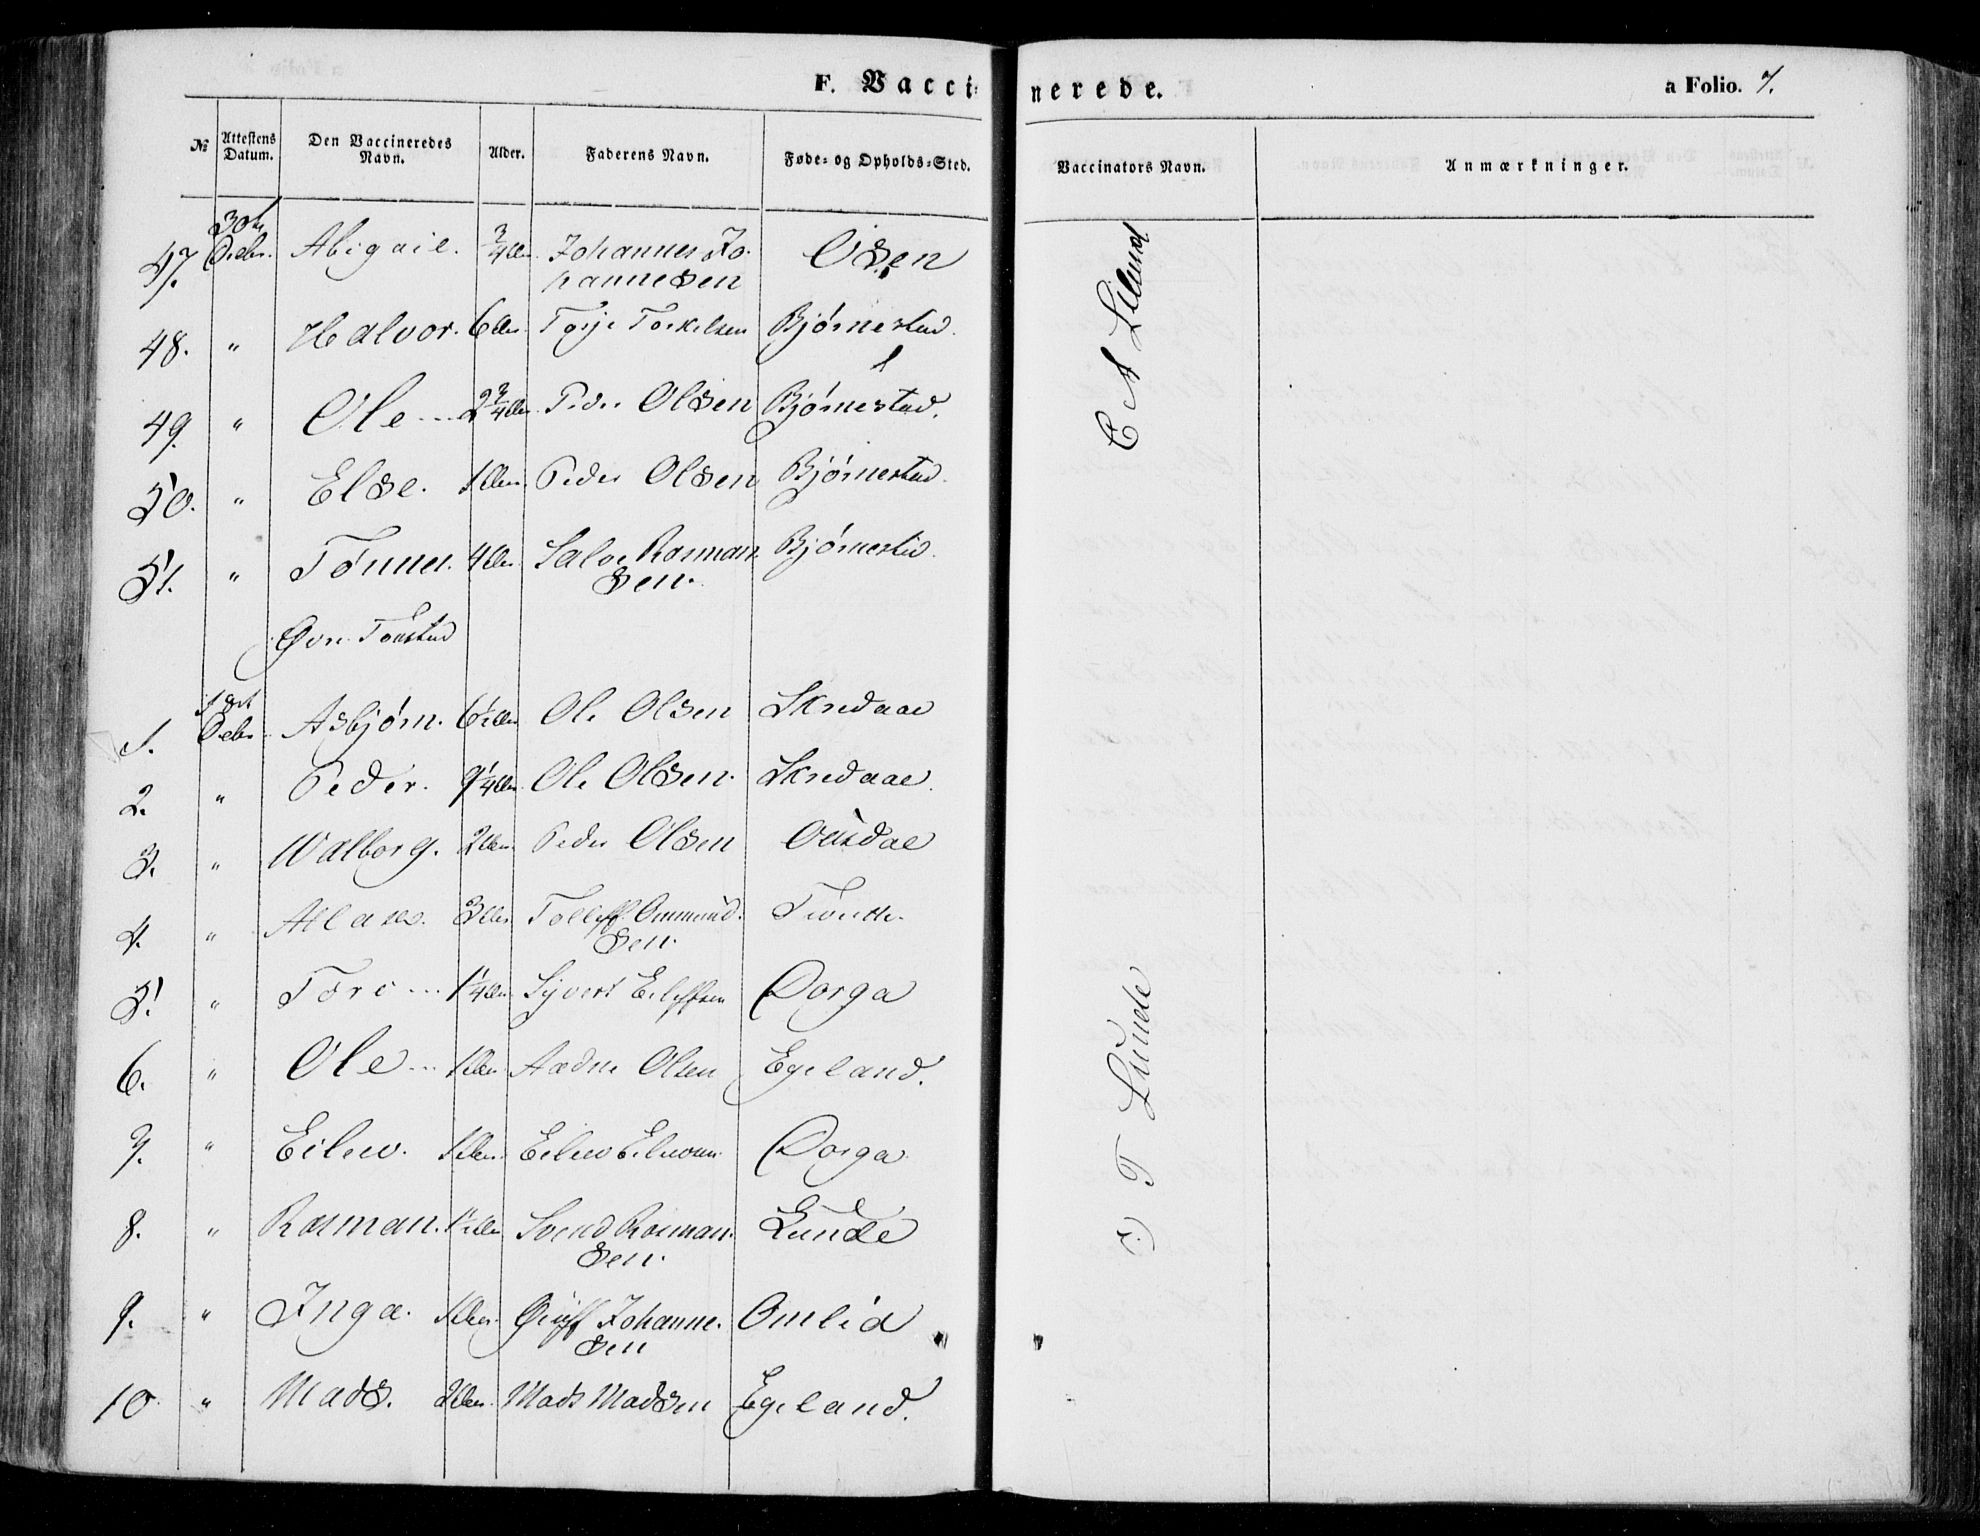 F. Vaccinerede.
a Folio. 7.
№ Attestens Datum. Den Vaccineredes Navn. Alder. Faderens Navn. Føde- og Opholds-Sted. Vaccinators Navn. Anmærkninger.
47. 30te Decbr. Abigael. 3/4 Johannes Johannesen Osen
48. " Halvor. 6 Torje Torkelsen Bjørnestad.
49. " Ole 2 3/4 Peder Olsen Bjørnestad.
50. " Else. 1 Peder Olsen Bjørnestad.
51. " Tønnes. 4 Salve Rasmansen. Bjørnestad.
Øvre Tonstad
1. 1st Decbr Asbjørn. 6 1/2 Ole Olsen Skredaae
2. " Peder. 9 1/4 Ole Olsen. Skredaae.
3. " Walborg. 2 Peder Olsen Ousdal
4. " 3 Tolleff Ommundsen.
5. " Tore 1 1/4 Syvert Eileffsen Dorga
6. " Ole 1 Aadne Olsen Egeland.
7. " Eilev. 1 Eilev Eilevsen Dorga
8. " Rasman. 1 1/2 Svend Rasmansen. Lunde
9. " Inga. 1 Johannesen Omlid
10 " Mads. 2 Mads Madsen Egeland.
T Lunde